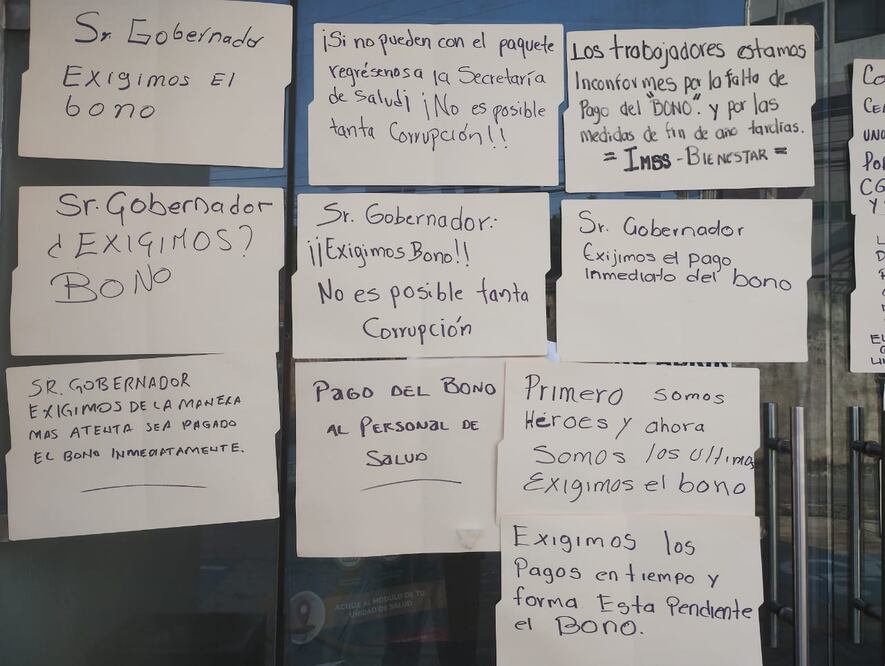 Sr. Gobernador
Exigimos El
bono
¡Si no pueden con el paquete
regrésenos a la Secretaría
de Salud¡ ¡No es posible
tanta Corrupción!!
Los trabajadores estamos
Inconformes por la falta de
Pago del "BONO". y por las
medidas de fin de año tardías.
= IMSS - BIENESTAR =
Sr. Gobernador
¿EXIGIMOS?
BONO
Sr. Gobernador:
¡¡Exigimos Bono!!
No es posible tanta
Corrupción
Sr. Gobernador
Exijimos el pago
Inmediato del bono
SR. GOBERNADOR
EXIGIMOS DE LA MANERA
MAS ATENTA SEA PAGADO
EL BONO INMEDIATAMENTE.
PAGO DEL BONO
AL PERSONAL DE
SALUD
Primero somos
Héroes y ahora
Somos los ultimos
Exigimos el bono
Exigimos los
Pagos en tiempo y
forma Esta Pendiente
el Bono.
ACUDE AL MÓDULO DE TU
UNIDAD DE SALUD